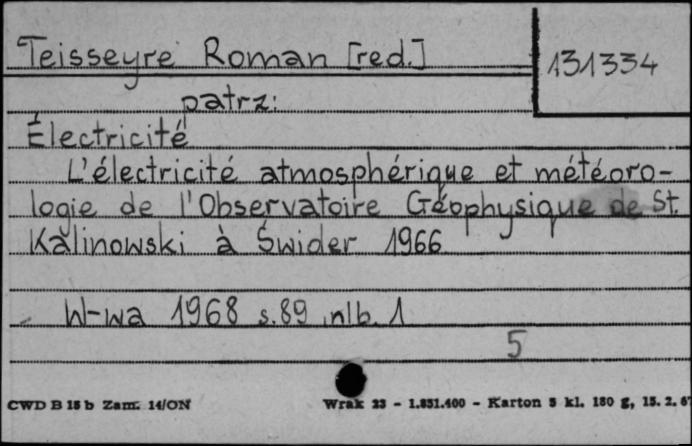 Teisseyre Roman [red.]
131334
patrz:
Électricité
L'électricité atmosphérique et météoro-
logie de l'Observatoire Géophysique de St.
Kalinowski à Świder 1966
W-wa 1968 s.89 inlb. 1
5
CWD B 15 b Zam. 14/ON
Wrak 23 - 1.851.400 - Karton 5 kl. 180 g, 15. 2. 67